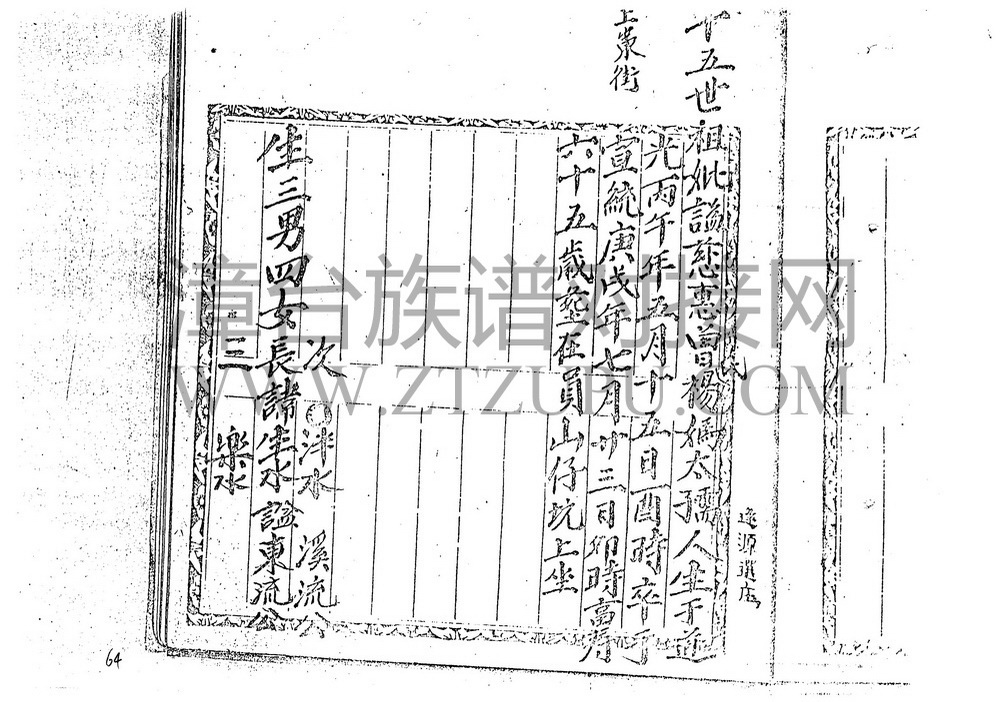 十五世祖妣諡慈惠曾楊媽太孺人生于道
氏
光丙午年五月十五日酉時卒于
宣統庚戌年七月廿三日卯時高寿
六十五歲塟在員山仔坑上坐
生三男四女長諱生水諡東流公
次 泮水 溪流公
三 樂水
上崇街
逢源選店
漳台族谱对接网
WWW.ZTZUPU.COM
64